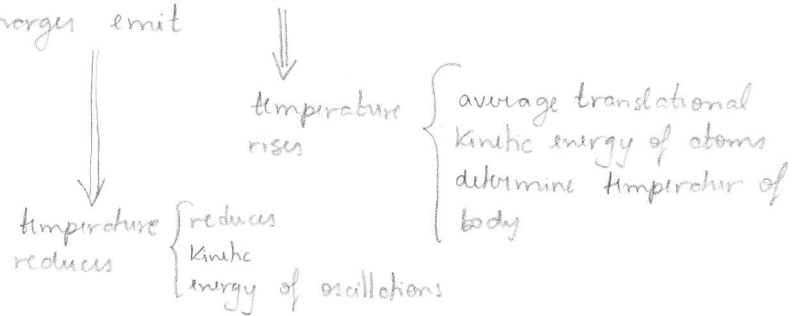 emit
temperature
rises
average translational
kinetic energy of atoms
determine temperatur of
body
temperature
reduces
reduces
kinetic
energy of oscillations